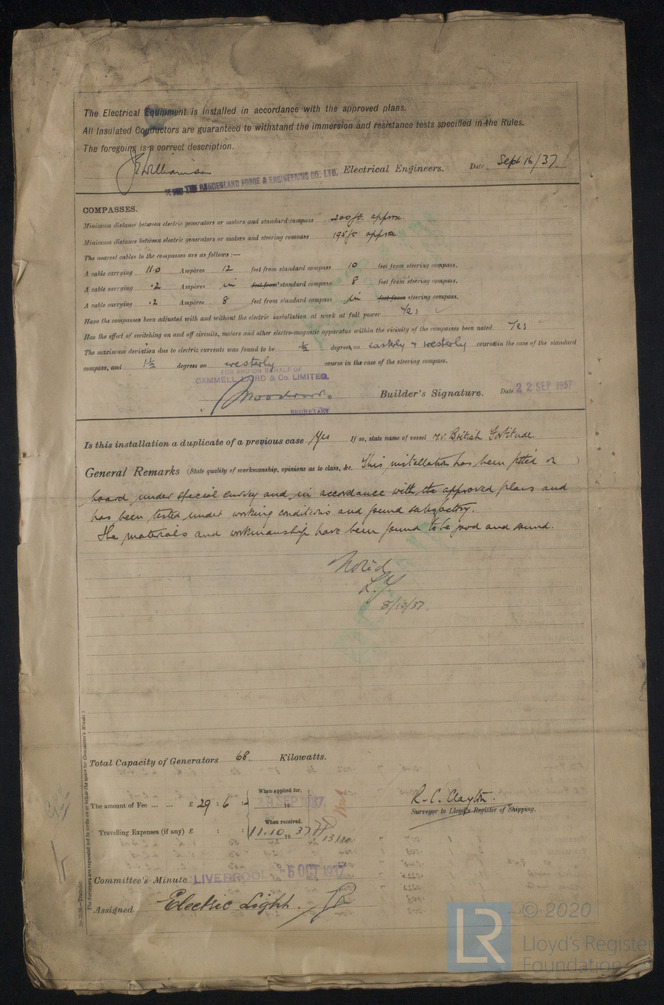 The Electrical Equipment is installed in accordance with the approved plans.
All Insulated Conductors are guaranteed to withstand the immersion and resistance tests specified in the Rules.
The foregoing is a correct description.
Williamson Electrical Engineers. Date Sept 16/37
FOR THE SUNDERLAND FORGE & ENGINEERING CO. LTD.
COMPASSES.
Minimum distance between electric generators or motors and standard compass 200 ft. approx
Minimum distance between electric generators or motors and steering compass 195 ft. approx
The nearest cables to the compasses are as follows:—
A cable carrying 11.0 Ampères 12 feet from standard compass 10 feet from steering compass.
A cable carrying .2 Ampères in feet from standard compass 8 feet from steering compass.
A cable carrying .2 Ampères 8 feet from standard compass in feet from steering compass.
Have the compasses been adjusted with and without the electric installation at work at full power Yes
Has the effect of switching on and off circuits, motors and other electro-magnetic apparatus within the vicinity of the compasses been noted Yes
The maximum deviation due to electric currents was found to be ½ degrees on easterly & westerly course in the case of the standard
compass, and 1½ degrees on westerly course in the case of the steering compass.
FOR AND ON BEHALF OF
CAMMELL LAIRD & Co. LIMITED.
Builder's Signature. Date 22 SEP 1937
SECRETARY
Is this installation a duplicate of a previous case Yes If so, state name of vessel M.V. British Fortitude
General Remarks (State quality of workmanship, opinions as to class, &c. This installation has been fitted on
board under special survey and, in accordance with the approved plans and
has been tested under working conditions and found satisfactory.
The materials and workmanship have been found to be good and sound.
Noted
8/10/37.
Total Capacity of Generators 68 Kilowatts.
The amount of Fee ... ... £ 29 : 6 : When applied for,
SEP 1937
R. C. Clayton.
Surveyor to Lloyd's Register of Shipping.
Travelling Expenses (if any) £ : : When received,
11.10.1937
13/10
Committee's Minute LIVERPOOL 5 OCT 1937
Assigned Electric Light.
LR © 2020
Lloyd's Register
Foundation